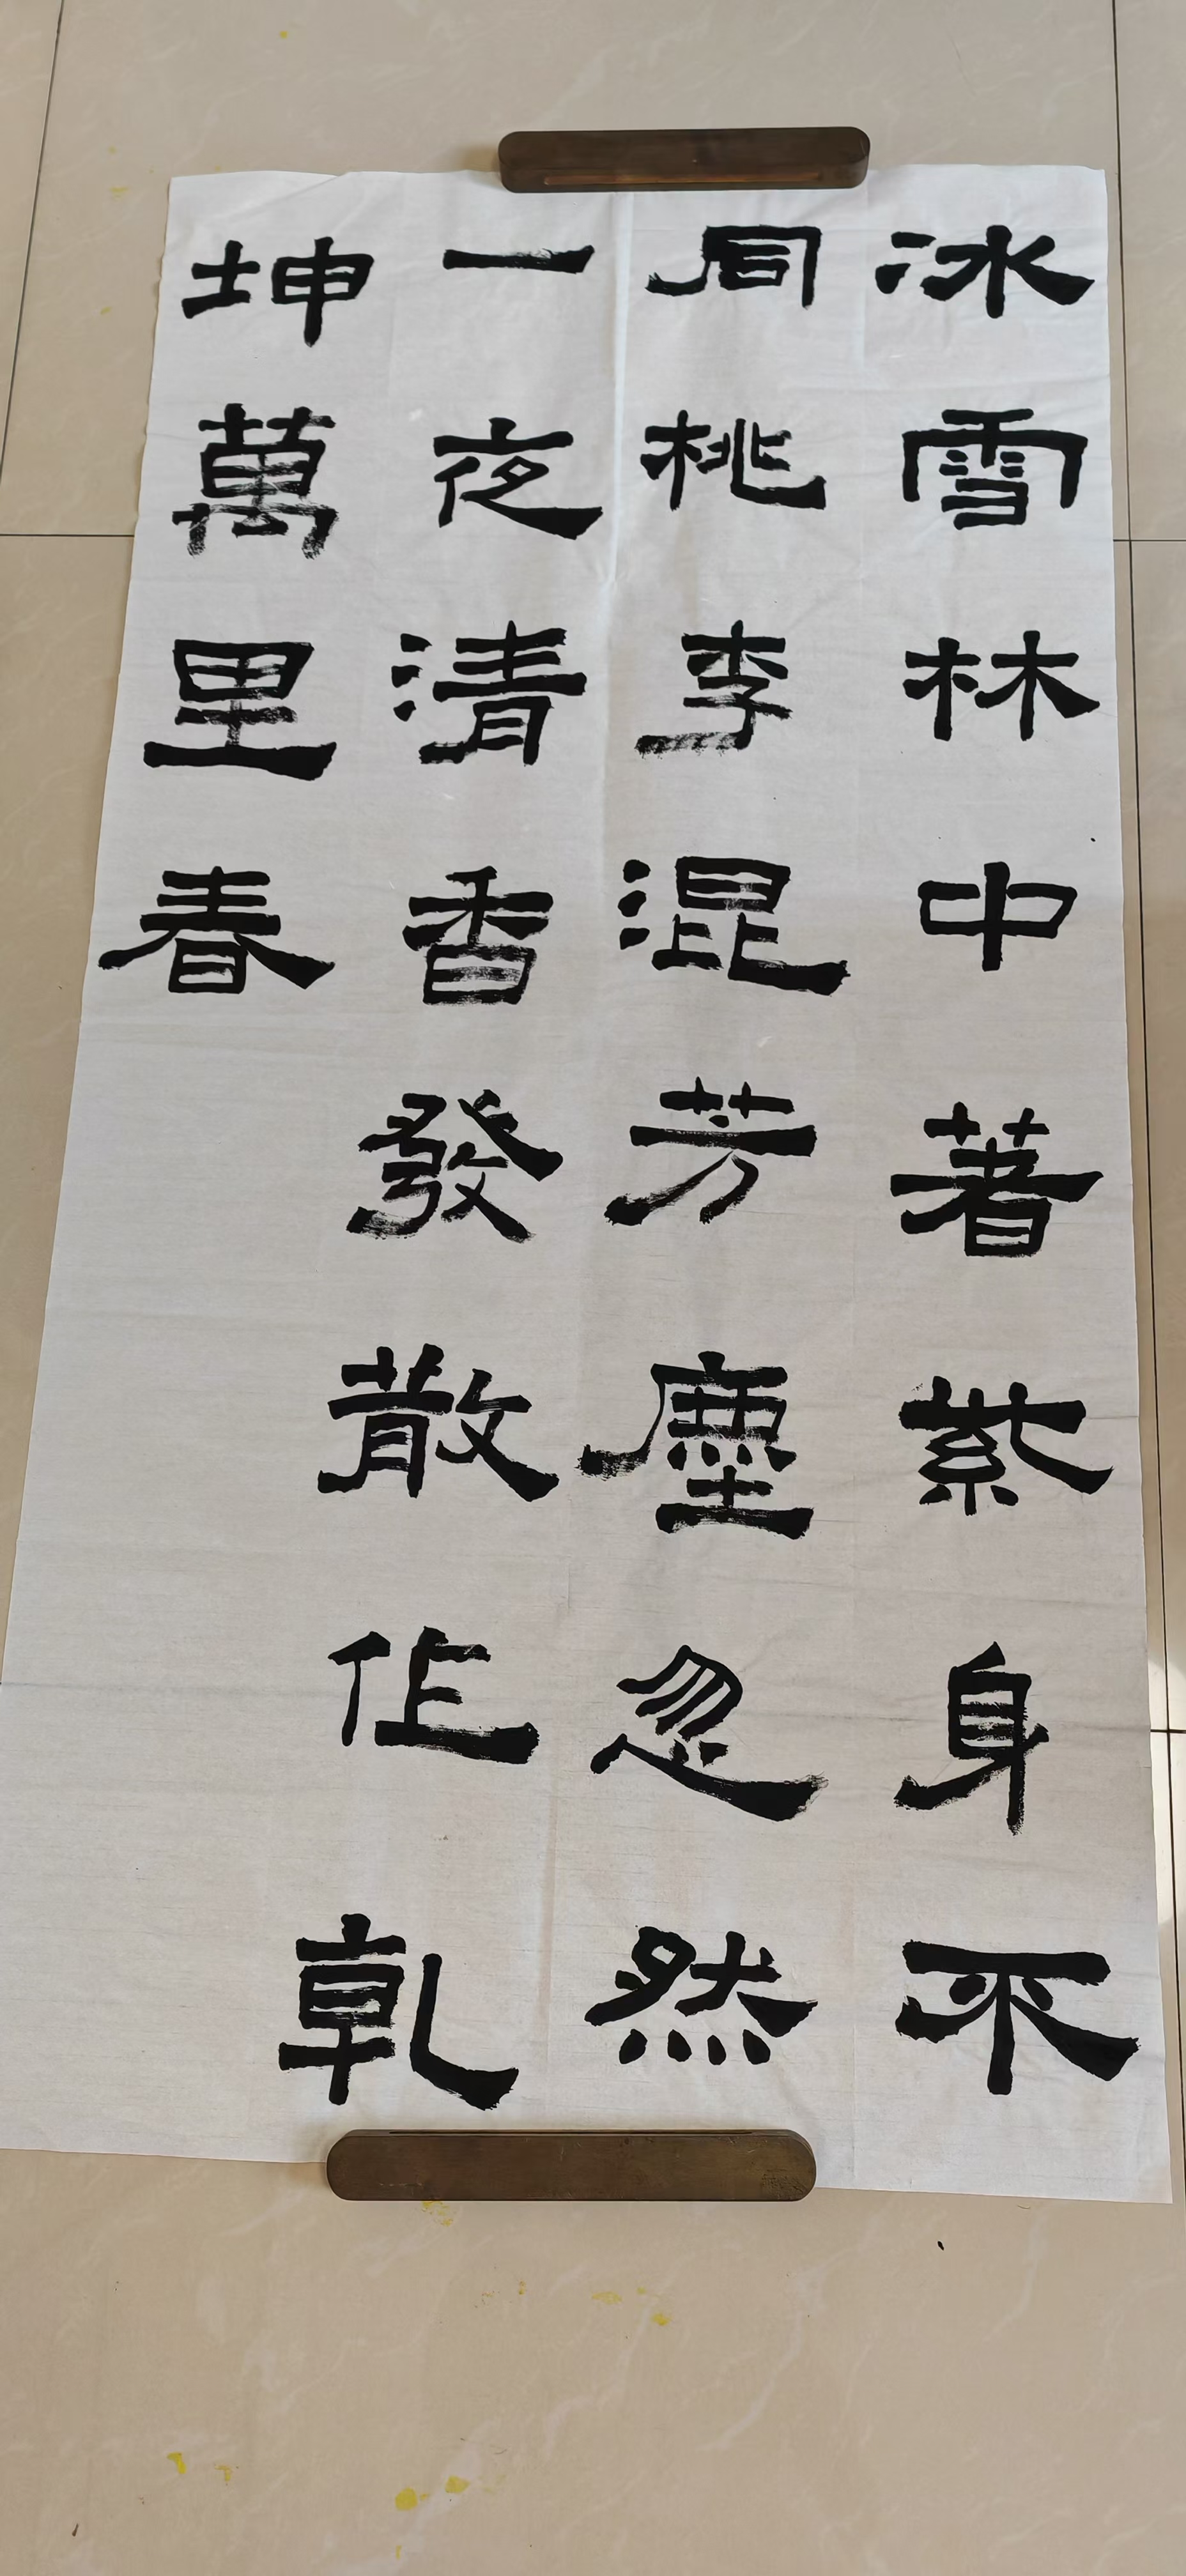 冰雪林中著紫身不
同桃李混芳塵忽然
一夜清香發散作乾
坤萬里春